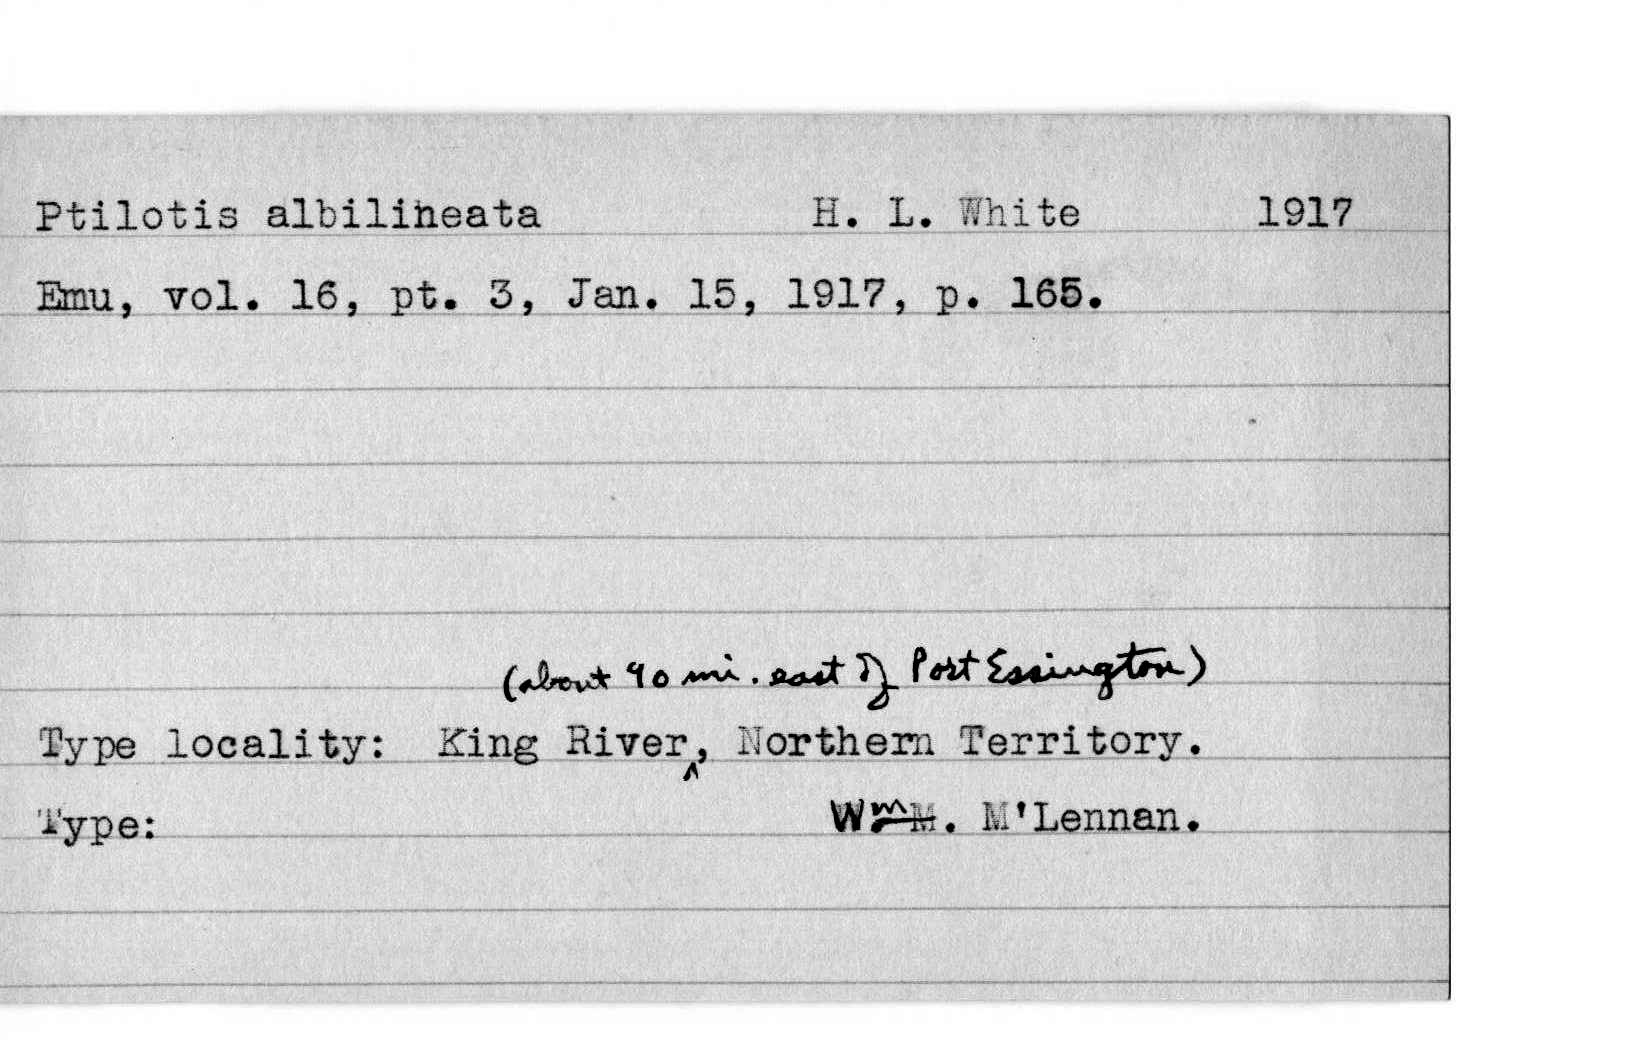 Ptilotis albilineata H. L. White 1917
Emu, vol. 16, pt. 3, Jan. 15, 1917, p. 165.
(about 90 mi. east of Port Essington)
Type locality: King River, Northern Territory.
Type: Wm. M'Lennan.